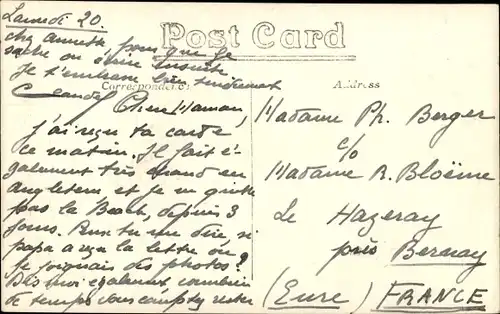 Samedi 20.
chez Annette pour que je
sache où écrire ensuite
Je t'embrasse bien tendrement
Claude
Post Card
Correspondence
Address
Chère Maman,
J'ai reçu ta carte
ce matin. Il fait é-
galement très chaud en
Angleterre et je ne quitte
pas la Beach, depuis 3
jours. Peux tu me dire si
papa a reçu la lettre où
je joignais des photos?
Dis moi également combien
de temps vous comptez rester
Madame Ph. Berger
c/o
Madame R. Bloëme
Le Hazeray
près Bernay
(Eure) FRANCE